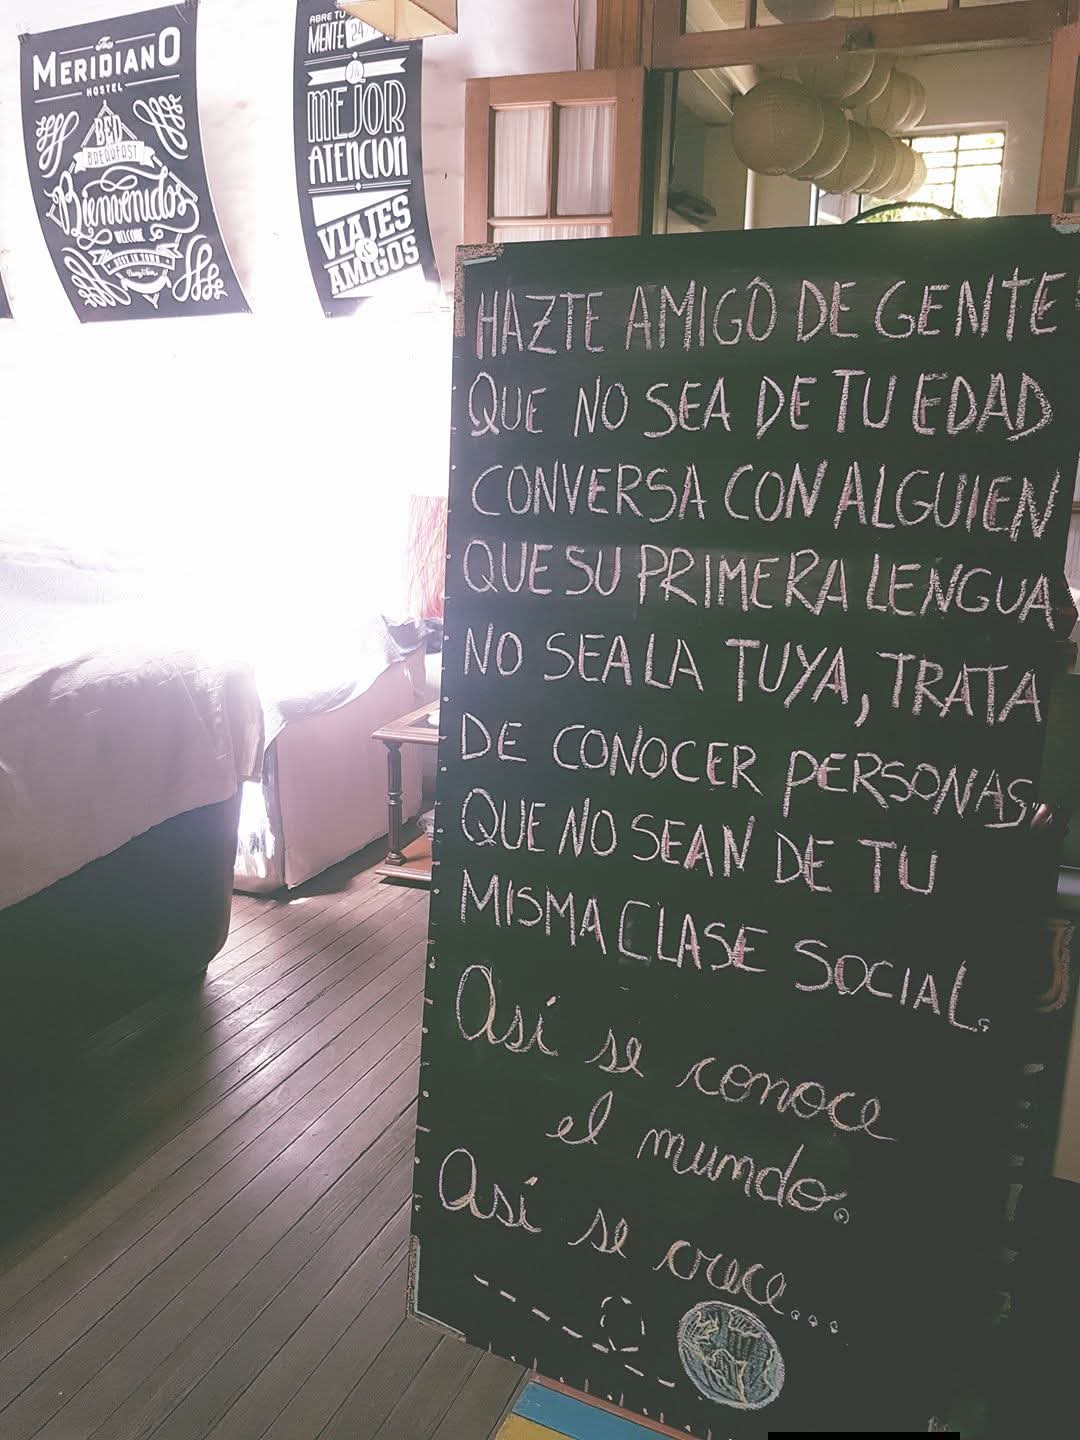 The
MERIDIANO
HOSTEL
BED
BREAKFAST
Bienvenidos
WELCOME
BEST IN TOWN
ABRE TU
MENTE
LA
MEJOR
ATENCION
VIAJES
&
AMIGOS
HAZTE AMIGO DE GENTE
QUE NO SEA DE TU EDAD
CONVERSA CON ALGUIEN
QUE SU PRIMERA LENGUA
NO SEA LA TUYA, TRATA
DE CONOCER PERSONAS
QUE NO SEAN DE TU
MISMA CLASE SOCIAL.
Así se conoce
el mundo.
Así se crece....